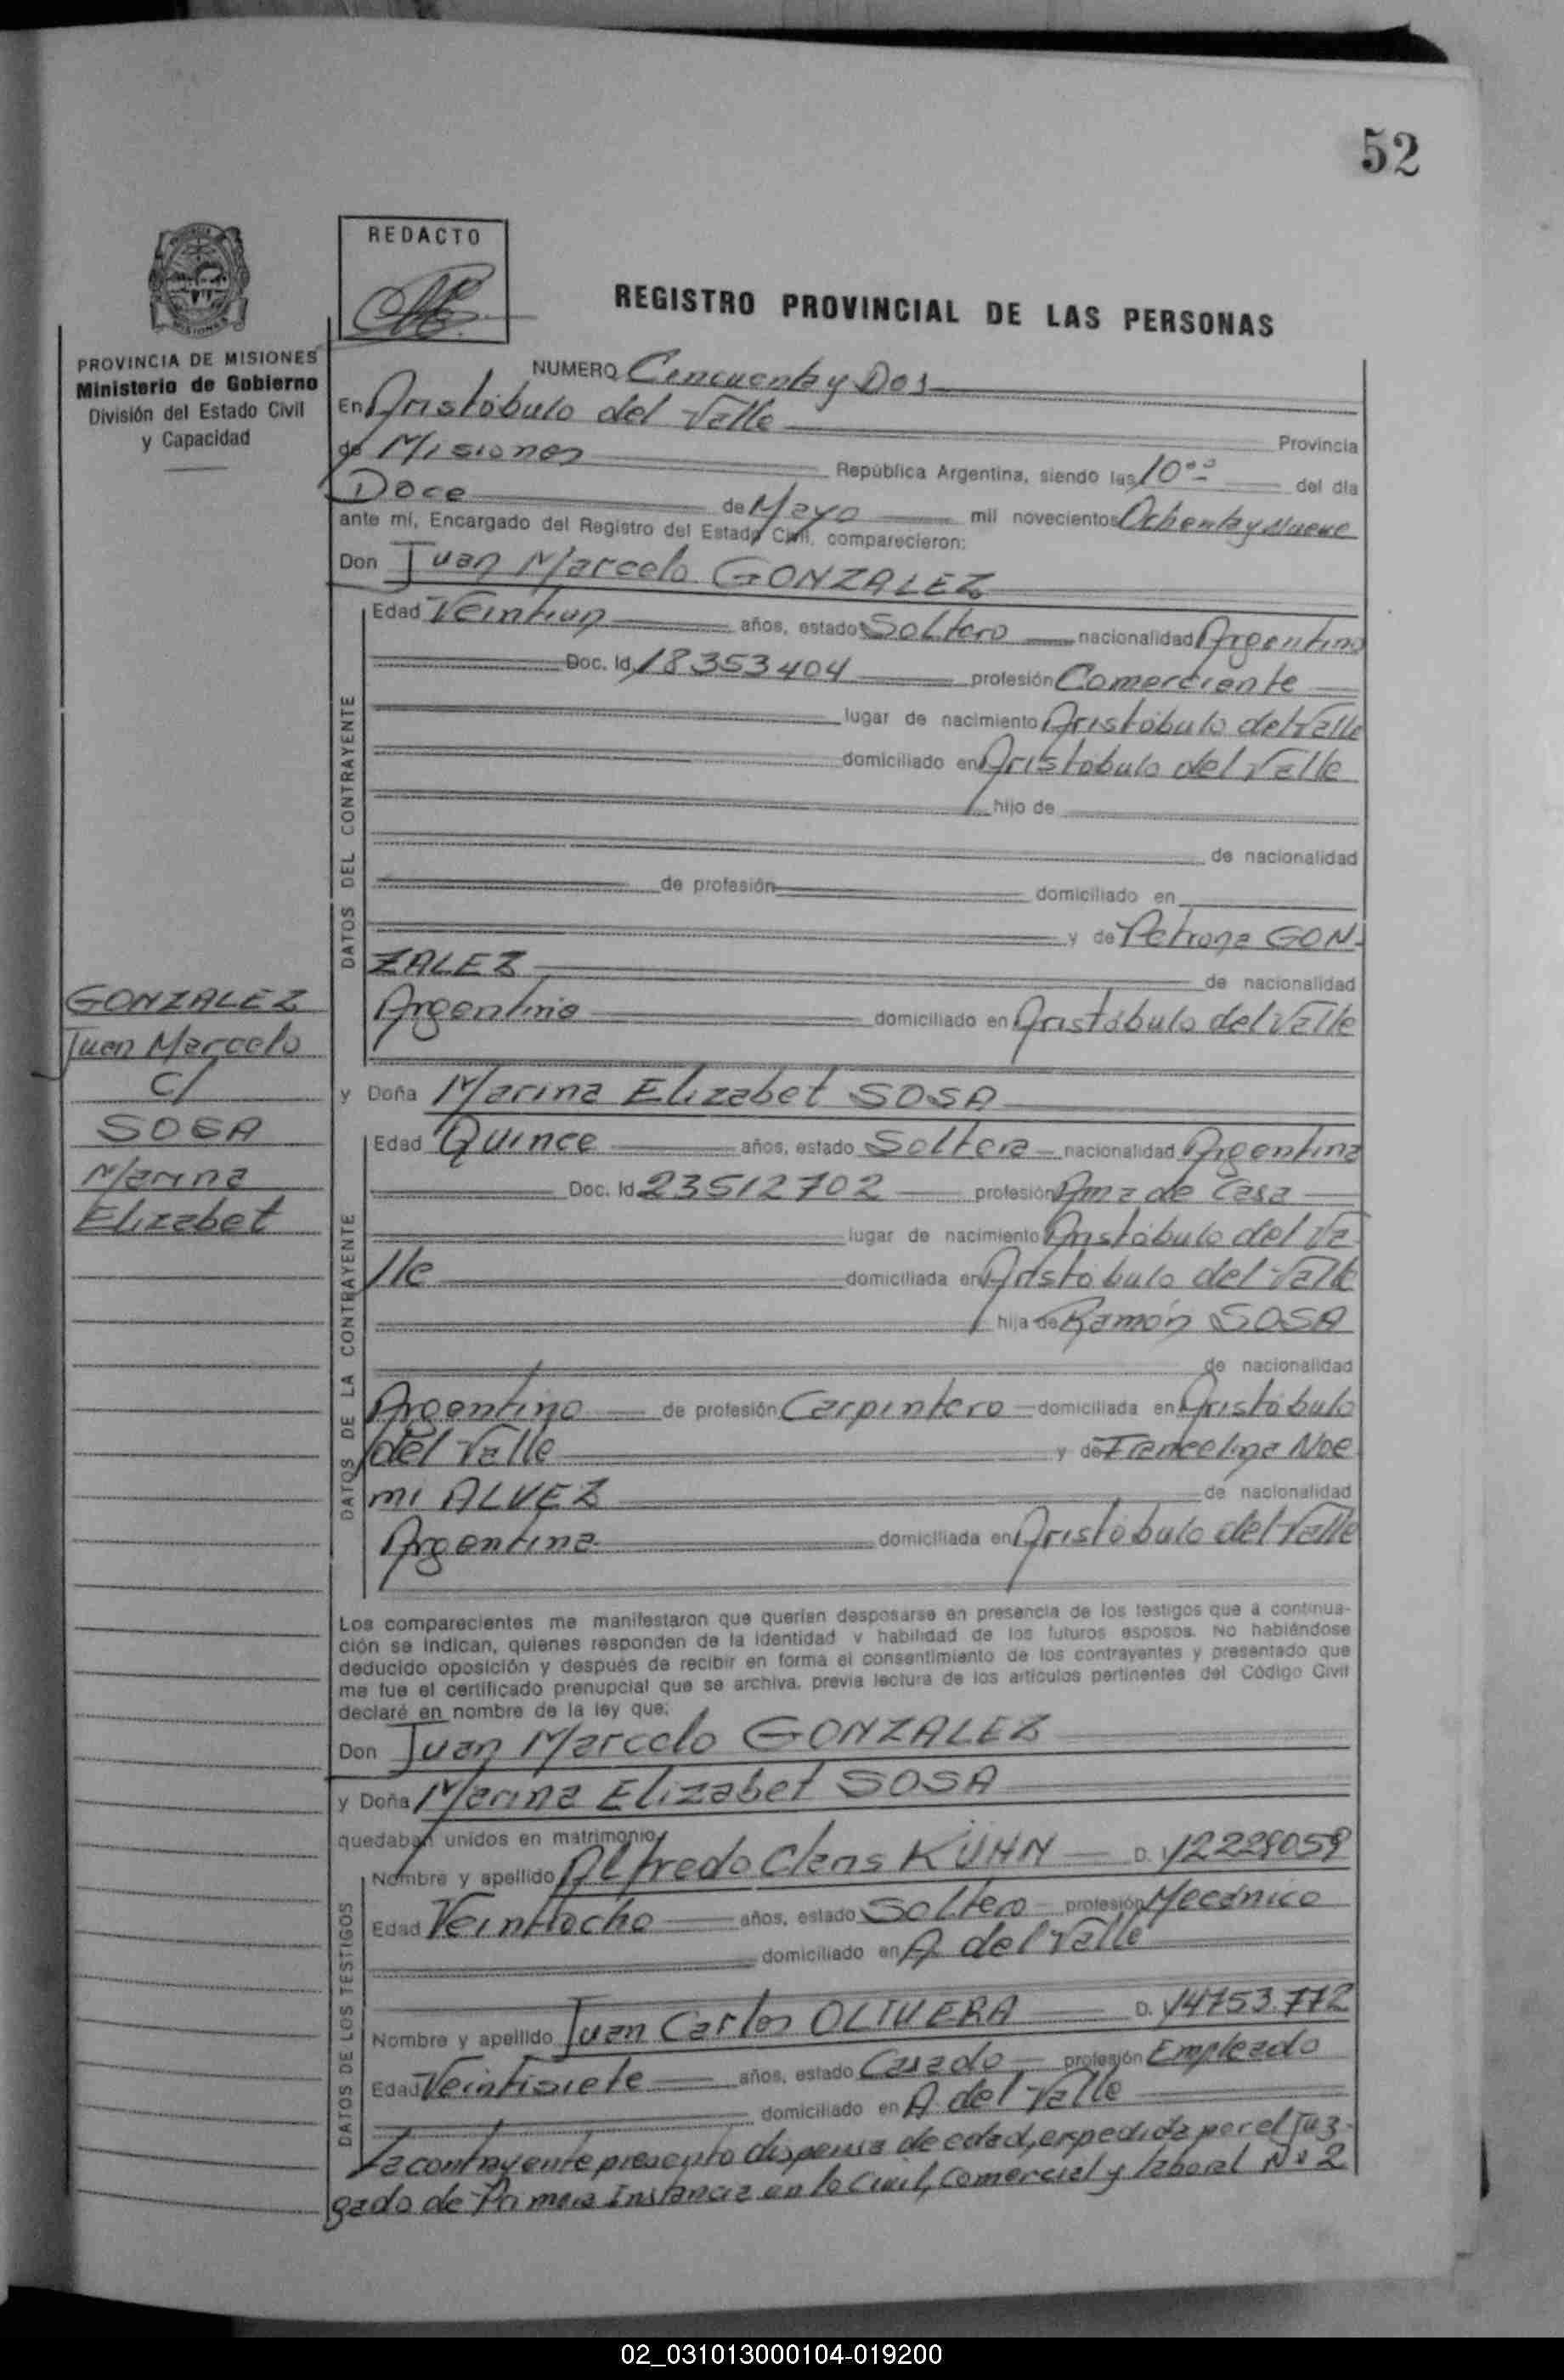 52
REDACTO
REGISTRO PROVINCIAL DE LAS PERSONAS
PROVINCIA DE MISIONES
Ministerio de Gobierno
División del Estado Civil
y Capacidad
MISIONES
NUMERO Cincuenta y Dos
En Aristóbulo del Valle
Provincia
de Misiones República Argentina, siendo las 10 00 del día
Doce de Mayo mil novecientos Ochenta y Nueve
ante mí, Encargado del Registro del Estado Civil, comparecieron:
Don Juan Marcelo GONZALEZ
DATOS DEL CONTRAYENTE
Edad Veintiun años, estado Soltero nacionalidad Argentino
Doc. Id. 18353404 profesión Comerciante
lugar de nacimiento Aristóbulo del Valle
domiciliado en Aristóbulo del Valle
hijo de
de nacionalidad
de profesión domiciliado en
y de Petrona GON-
ZALEZ de nacionalidad
Argentina domiciliado en Aristóbulo del Valle
GONZALEZ
Juan Marcelo
C/
SOSA
Marina
Elizabet
y Doña Marina Elizabet SOSA
DATOS DE LA CONTRAYENTE
Edad Quince años, estado Soltera nacionalidad Argentina
Doc. Id. 23512702 profesión Ama de Casa
lugar de nacimiento Aristóbulo del Va
lle domiciliada en Aristóbulo del Valle
hija de Ramón SOSA
de nacionalidad
Argentino de profesión Carpintero domiciliada en Aristóbulo
del Valle y de Francelina Noe
mi ALVEZ de nacionalidad
Argentina domiciliada en Aristóbulo del Valle
Los comparecientes me manifestaron que querían desposarse en presencia de los testigos que a continua-
ción se indican, quienes responden de la identidad y habilidad de los futuros esposos. No habiéndose
deducido oposición y después de recibir en forma el consentimiento de los contrayentes y presentado que
me fue el certificado prenupcial que se archiva, previa lectura de los artículos pertinentes del Código Civil
declaré en nombre de la ley que:
Don Juan Marcelo GONZALEZ
y Doña Marina Elizabet SOSA
quedaban unidos en matrimonio
DATOS DE LOS TESTIGOS
Nombre y apellido Alfredo Clens KÜHN D. 12229059
Edad Veintiocho años, estado Soltero profesión Mecánico
domiciliado en A del Valle
Nombre y apellido Juan Carlos OLIVERA D. 14753.772
Edad Veintisiete años, estado Casado profesión Empleado
domiciliado en A. del Valle
La contrayente presento dispensa de edad, expedida por el Juz-
gado de Primera Instancia en lo Civil, Comercial y laboral Nº 2
02_031013000104-019200